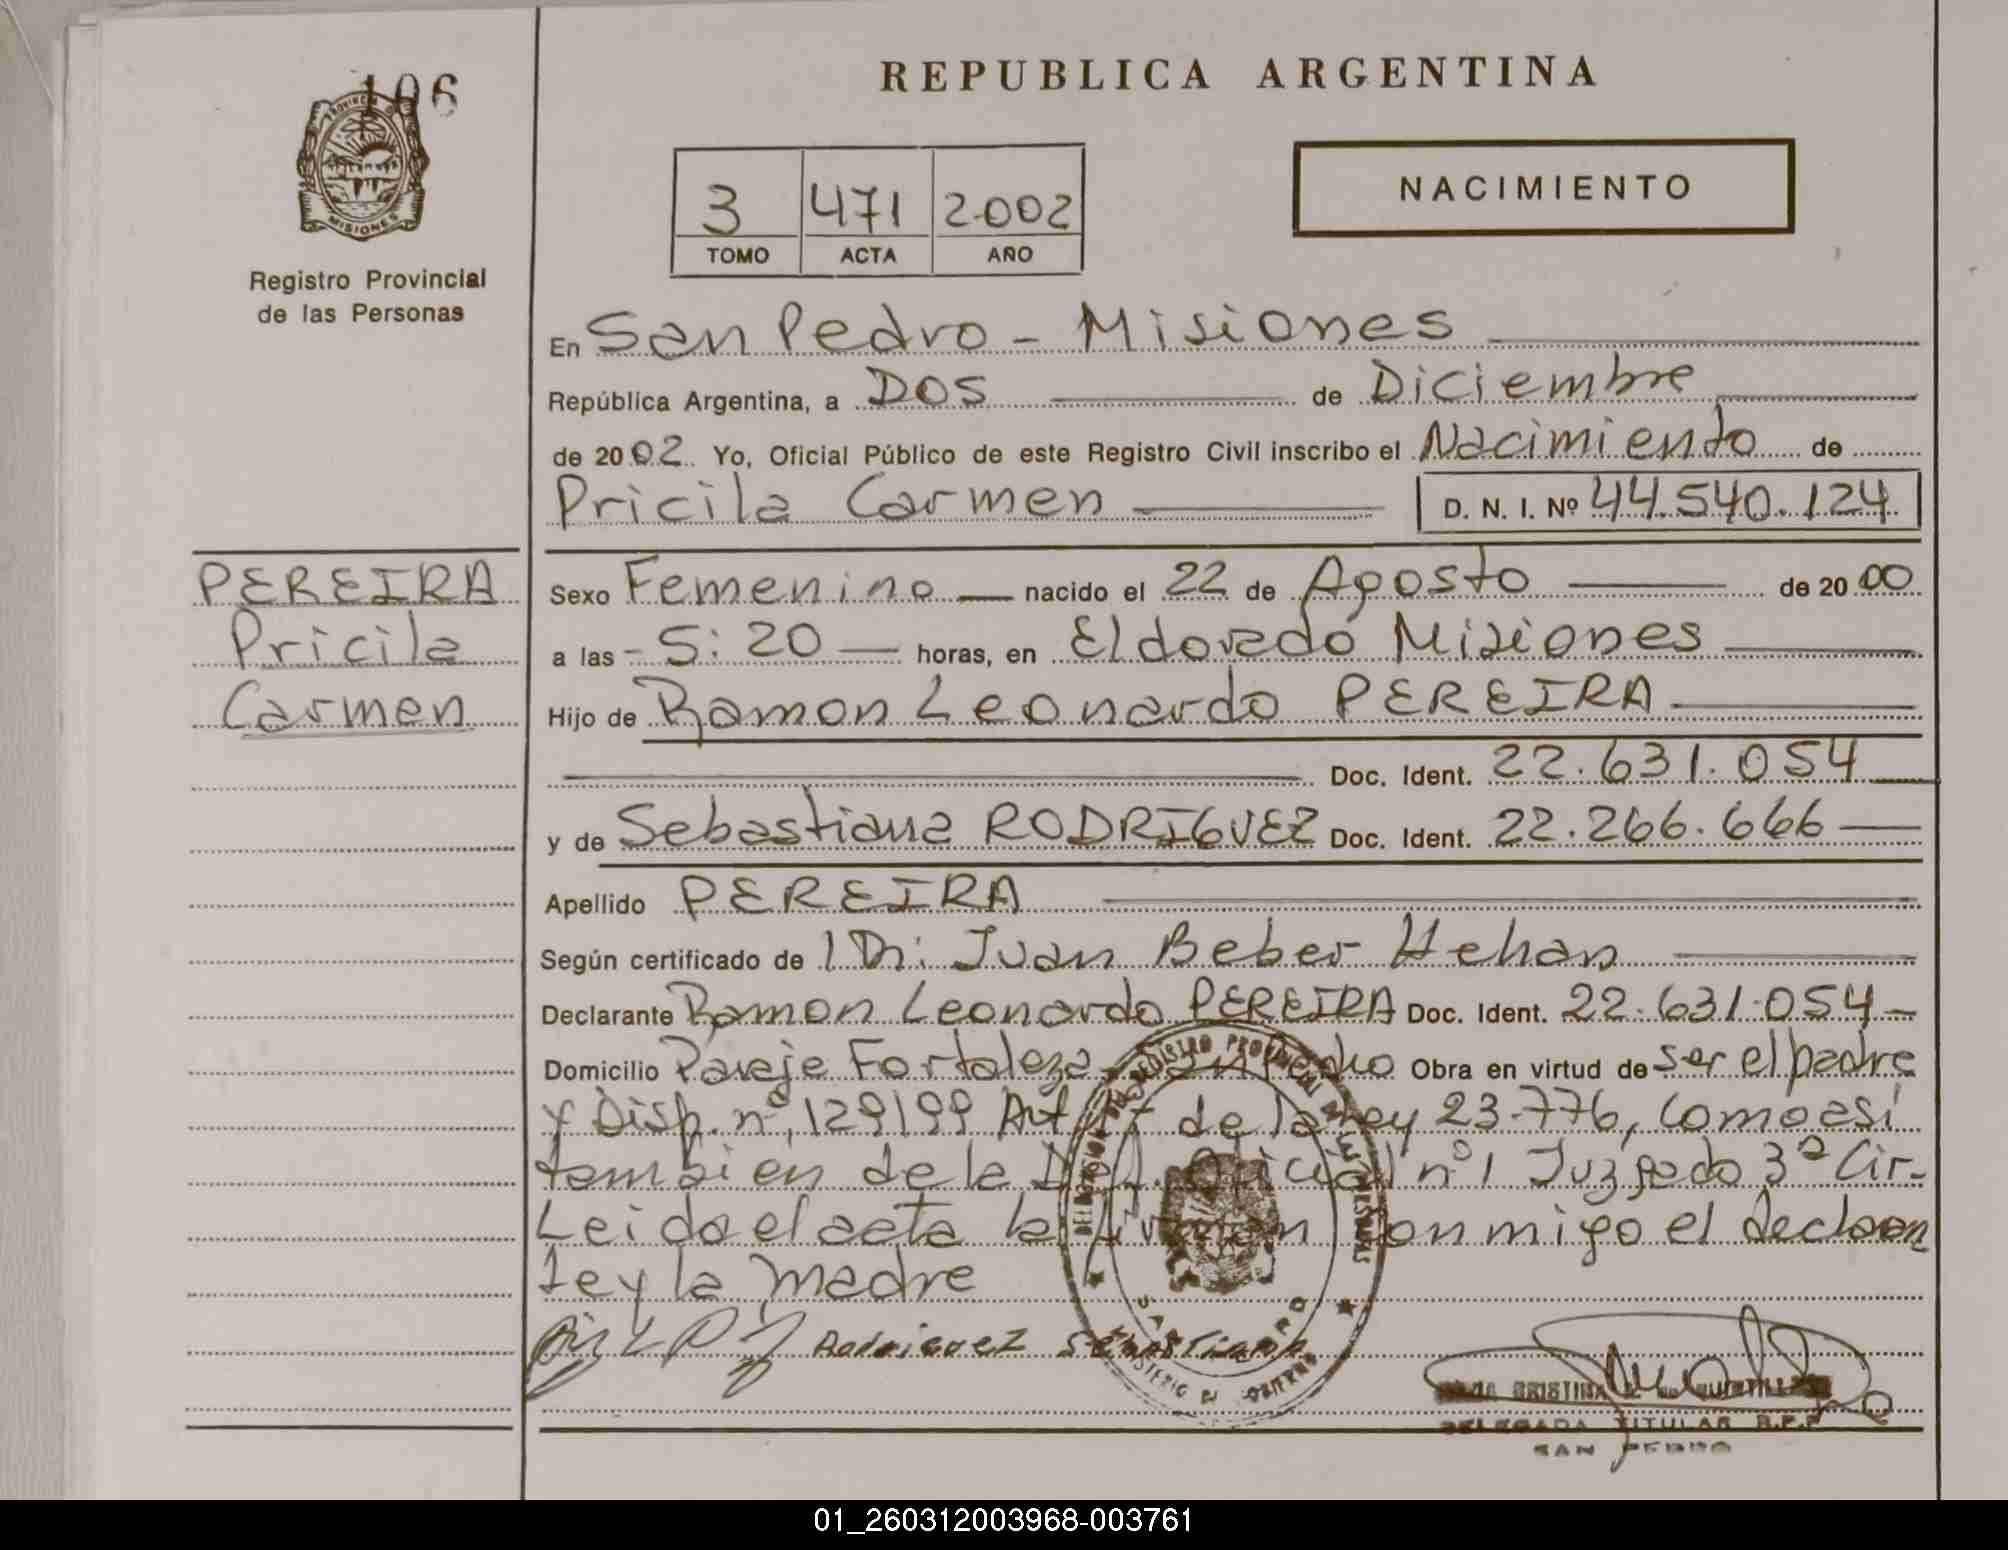 106
REPUBLICA ARGENTINA
PROVINCIA DE MISIONES
Registro Provincial
de las Personas
3 471 2002
TOMO ACTA AÑO
NACIMIENTO
En San Pedro - Misiones
República Argentina, a DOS de Diciembre
de 2002. Yo, Oficial Público de este Registro Civil inscribo el Nacimiento de
Pricila Carmen D. N. I. Nº 44.540.124
PEREIRA
Pricila
Carmen
Sexo Femenino nacido el 22 de Agosto de 2000
a las 5:20 horas, en Eldorado Misiones
Hijo de Ramon Leonardo PEREIRA
Doc. Ident. 22.631.054
y de Sebastiana RODRIGUEZ Doc. Ident. 22.266.666
Apellido PEREIRA
Según certificado de l Dr: Juan Beber Hehan
Declarante Ramon Leonardo PEREIRA Doc. Ident. 22.631.054
Domicilio Paraje Fortaleza San Pedro Obra en virtud de ser el padre
y Disp. nº 129199 Art de la ley 23.776, como así
tambien de la Oficial nº 1 Juzgado 3ª Cir-
Leida el acta la firman conmigo el declaran
te y la madre
Rodriguez Sebastiana
DELEGACION DEL REGISTRO PROVINCIAL DE LAS PERSONAS
SAN PEDRO
MINISTERIO DE GOBIERNO
CRISTINA
DELEGADA TITULAR R.P.P.
SAN PEDRO
01_260312003968-003761